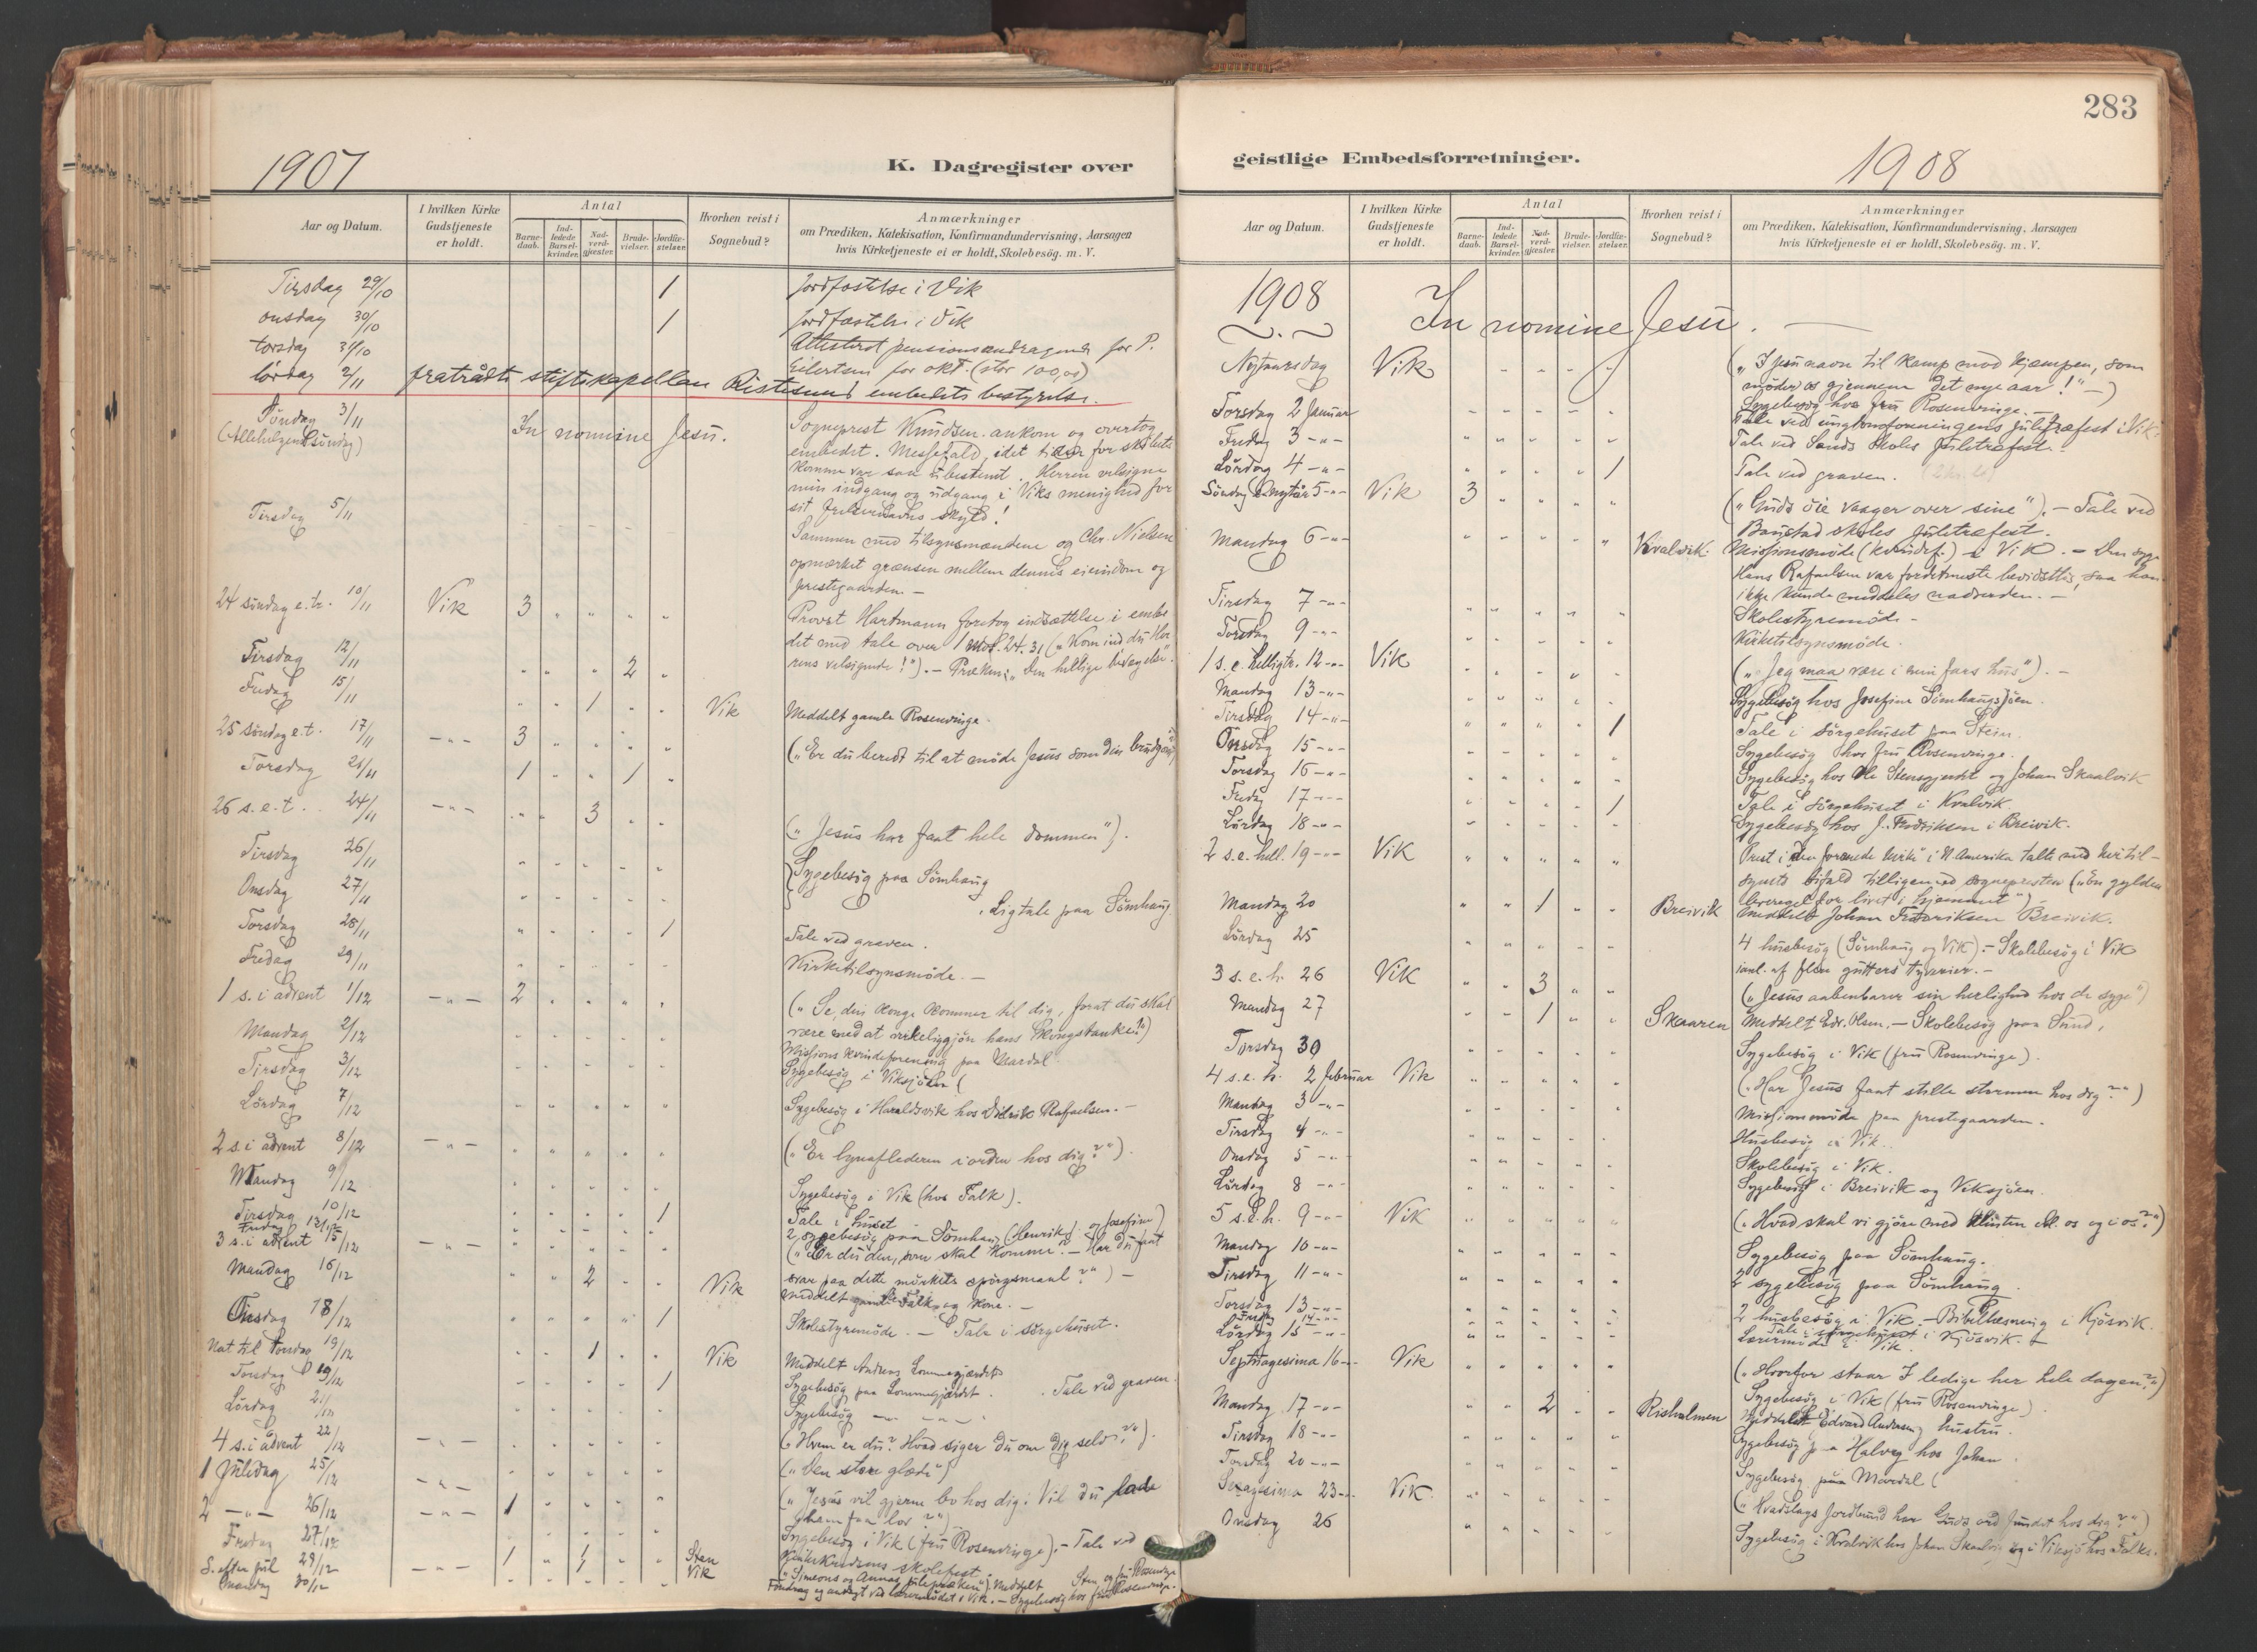 1907
K. Dagregister over
Aar og Datum.
I hvilken Kirke
Gudstjeneste
er holdt.
Antal
Barne-
daab.
Ind-
ledede
Barsel-
kvinder.
Nad-
verd-
gjæster
Brude-
vielser.
Jordfæ-
stelser.
Hvorhen reist i
Sognebud?
Anmærkninger
om Prædiken, Katekisation, Konfirmandundervisning, Aarsagen
hvis Kirketjeneste ei er holdt, Skolebesög. m. V.
Tirsdag 29/10 1 Jordfæstelse i Vik
onsdag 30/10 1 Jordfæstelse i Vik
torsdag 31/10 Attesteret pensionsandragende for P.
Eilertsen for okt. (stor 100,00)
lørdag 2/11 fratraadte stiftskapellan Ristesund embedets bestyrelse.
Søndag 3/11 In nomine Jesu. Sogneprest Knudsen ankom og overtog
(Allehelgenssøndag)
embedet. Messefald, idet tiden for skibets
komme var saa ubestemt. Herren velsigne
min indgang og udgang i Viks menighed for
sit frelsernavns skyld!
Tirsdag 5/11 Sammen med tilsynsmændene og Chr. Nielsen
opmerket grænsen mellem dennes eiendom og
prestegaarden. -
24 søndag e. tr. 10/11 Vik 3 Provst Hartmann foretog indsættelse i embe
det med tale over 1 Mos. 24. 31 („Kom ind du Her
rens velsignede!"). - Præken: „Den hellige bevægelse".
Tirsdag 12/11 2
Fredag 15/11 1 Vik Meddelt gamle Rosenvinge.
25 søndag e. t. 17/11 -"- 3 („Er du beredt til at møde Jesus som din brudgom?")
Torsdag 21/11 1 1
26 s. e. t. 24/11 -"- 3 („Jesus har faat hele dommen").
Tirsdag 26/11 Sygebesøg paa Sømhaug
Onsdag 27/11
Torsdag 28/11 1 Tale ved graven. Ligtale paa Sømhaug.
Fredag 29/11 Kirketilsynsmøde. -
1 s. i advent 1/12 -"- 2 („Se, din konge kommer til dig, forat du skal
være med at virkeliggjøre hans kongstanke!")
Mandag 2/12 Missions kvindeforening paa Mardal
Tirsdag 3/12 Sygebesøg i Viksjøen
Lørdag 7/12 Sygebesøg i Haraldsvik hos Didrik Rafaelsen. -
2 s. i advent 8/12 -"- („Er lynaflederen i orden hos dig?").
Mandag 9/12 Sygebesøg i Vik (hos Falk).
Tirsdag 10/12 1 Tale i huset
Fredag 13/12 2 sygebesøg paa Sømhaug (Henrik og Josefine)
3 s. i advent 15/12 -"- („Er du den, som skal komme? - Har du faat
svar paa dette mørkets spørgsmaal?") -
Mandag 16/12 2 Vik Meddelt gamle Falk og kone. -
Onsdag 18/12 1 Skolestyremøde. - Tale i sørgehuset.
Nat til Torsdag 19/12 1 Vik Meddelt Andreas Lommegjærdet
Torsdag 19/12 1 Sygebesøg paa Lommegjærdet. Tale ved graven.
Lørdag 21/12 Sygebesøg -"- -"-
4 s. i advent 22/12 -"- („Hvem er du? Hvad siger du om dig selv?").
1 Juledag 25/12 -"- („Den store glæde")
2 -"- 26/12 -"- 1 („Jesus vil gjerne bo hos dig: Vil du lade
ham faa lov?")
Fredag 27/12 Sygebesøg i Vik (fru Rosenvinge). - Tale ved
skolefest.
S. efter jul 29/12 -"- 1 Sten
Vik („Simeons og Annas julepræken"). Meddelt Sten og fru Rosenvinge
Mandag 30/12 Foredrag og andagt ved lærermødet i Vik. - Sygebesøg hos fru Rosenvinge.
283
geistlige Embedsforretninger.
1908
Aar og Datum.
I hvilken Kirke
Gudstjeneste
er holdt.
Antal
Barne-
daab.
Ind-
ledede
Barsel-
kvinder.
Nad-
verd-
gjæster
Brude-
vielser.
Jordfæ-
stelser.
Hvorhen reist i
Sognebud?
Anmærkninger
om Prædiken, Katekisation, Konfirmandundervisning, Aarsagen
hvis Kirketjeneste ei er holdt, Skolebesög. m. V.
1908 In nomine Jesu.
Nytaarsdag Vik („I Jesu navn til kamp mod kjæmpen, som
møder os gjennem det nye aar!" -)
Torsdag 2 Januar Sygebesøg hos fru Rosenvinge. -
Fredag 3 -"- Tale ved ungdomsforeningens juletræfest i Vik.
Lørdag 4 -"- 1 Tale ved Sunds skoles juletræfest.
Tale ved graven.
Søndag e. nytår 5 -"- Vik 3 („Guds öie vaager over sine"). - Tale ved
Baustad skoles juletræfest.
Mandag 6 -"- Kvalvik Missionsmøde (kvindef.) i Vik. - Den syge
Hans Rafaelsen var fordetmeste bevidstløs, saa han
ikke kunde meddeles nadverden. -
Tirsdag 7 -"- Skolestyremøde -
Torsdag 9 -"- Kirketilsynsmøde.
1 s. e. helligtr. 12 -"- Vik („Jeg maa være i min fars hus"). -
Mandag 13 -"- Sygebesøg hos Josefine Sømhaugsjøen.
Tirsdag 14 -"- 1 Tale i sørgehuset paa Stein.
Onsdag 15 -"- Sygebesøg hos fru Rosenvinge.
Torsdag 16 -"- Sygebesøg hos Ole Stensgjerdet og Johan Skaalvik
Fredag 17 -"- 1 Tale i sørgehuset i Kvalvik.
Lørdag 18 -"- Sygebesøg hos J. Fredriksen i Breivik.
2 s. e. hell. 19 -"- Vik Prest i den forenede kirke i N. Amerika talte med kirketil-
synets bifald tilligemed sognepresten („En gylden
leveregel for livet i hjemmet") -
Mandag 20 1 Breivik Meddelt Johan Fredriksen Breivik.
Lørdag 25 4 husbesøg (Sømhaug og Vik). - Skolebesøg i Vik
ianl. af flere gutters tyranier. -
3 s. e. h. 26 Vik 3 („Jesus aabenbarer sin herlighed hos de syge")
Mandag 27 1 Skaaren Meddelt Edv. Olsen. - Skolebesøg paa Sund.
Torsdag 30 Sygebesøg i Vik (fru Rosenvinge).
4 s. e. h. 2 februar Vik („Har Jesus faat stille stormen hos dig?")
Mandag 3 -"- Missionsmøde paa prestegaarden.
Tirsdag 4 -"- Husbesøg i Vik.
Onsdag 5 -"- Skolebesøg i Vik.
Lørdag 8 -"- Sygebesøg i Breivik og Viksjøen.
5 s. e. h. 9 -"- Vik („Hvad skal vi gjøre med klinten bl. os og i os?")
Mandag 10 -"- Sygebesøg paa Sømhaug.
Tirsdag 11 -"- 2 sygebesøg paa Sømhaug.
Torsdag 13 -"- 2 husbesøg i Vik. - Bibellæsning i Kjøsvik.
Fredag 14 -"- Tale i sørgehuset i Kjøsvik.
Lørdag 15 -"- Lærermøde i Vik.
Septuagesima 16 -"- Vik („Hvorfor staar I ledige her hele dagen?")
Mandag 17 -"- 2 Risholmen Sygebesøg i Vik (fru Rosenvinge)
Meddelt Edvard Andersens hustru.
Tirsdag 18 -"- Sygebesøg paa Halvøy hos Johan
Torsdag 20 -"- Sygebesøg paa Mardal
Sexagesima 23 -"- Vik. („Hvadslags jordbund har Guds ord fundet hos dig?")
Onsdag 26 Sygebesøg i Kvalvik hos Johan Skaalvik og i Viksjø hos Falk.